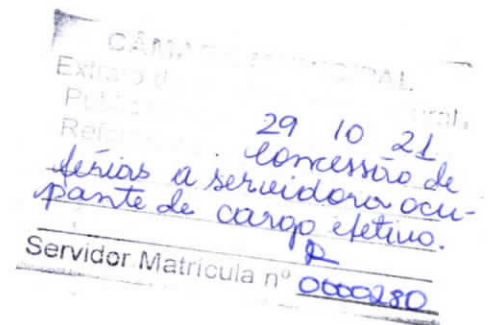 CÂMARA MUNICIPAL
Extrato
29 10 21
concessão de
férias a servidora ocu-
pante de cargo efetivo.
Servidor Matrícula nº 0000280